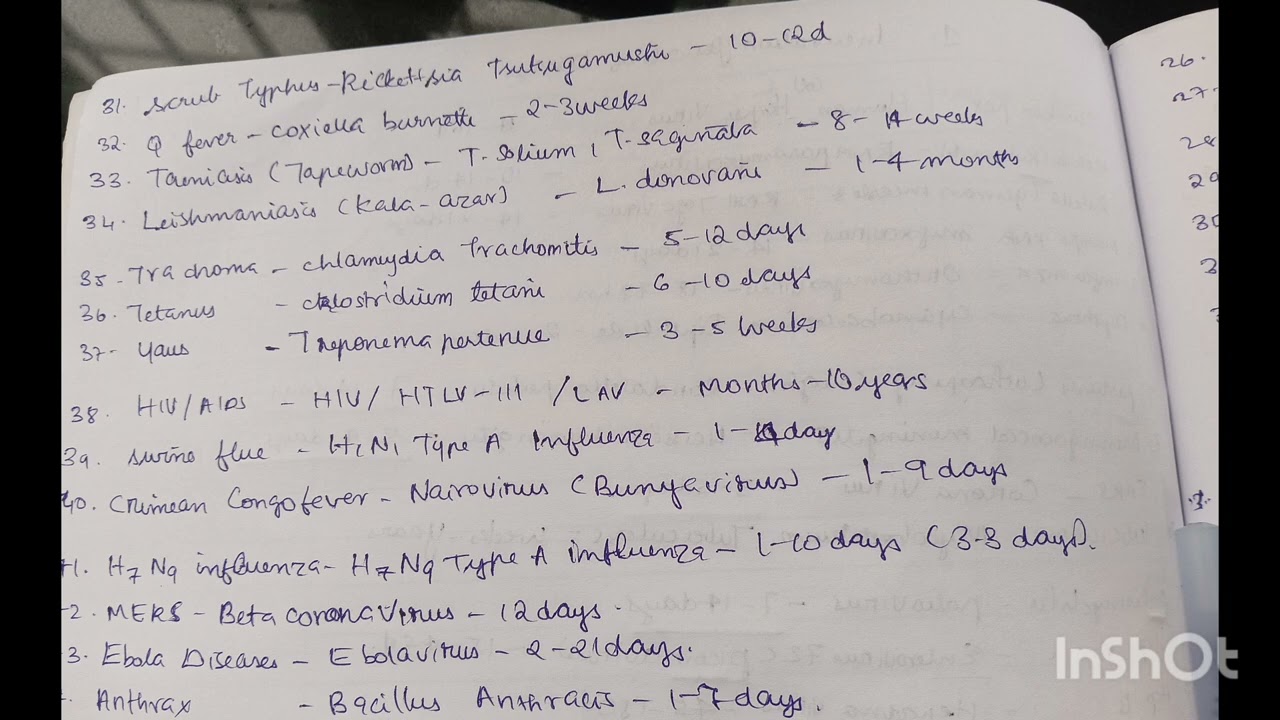 31. Scrub Typhus - Rickettsia Tsutsugamushi - 10-12d
32. Q fever - coxiella burnetti - 2-3 weeks
33. Taeniasis (Tapeworm) - T. Solium, T. saginata - 8-14 weeks
34. Leishmaniasis (Kala-azar) - L. donovani - 1-4 months
35. Trachoma - chlamydia trachomitis - 5-12 days
36. Tetanus - clostridium tetani - 6-10 days
37- Yaws - Treponema pertenue - 3-5 weeks
38. HIV/AIDS - HIV/ HTLV-III /LAV - Months-10 years
39. swine flue - H1N1 Type A Influenza - 1-4 day
40. Crimean Congo fever - Nairovirus (Bunyavirus) - 1-9 days
1. H7N9 influenza - H7N9 Type A influenza - 1-10 days (3-3 days).
2. MERS - Beta coronavirus - 12 days.
3. Ebola Diseases - Ebolavirus - 2-21 days.
Anthrax - Bacillus Anthracis - 1-7 days.
26.
27.
28
29
30
3
InShOt